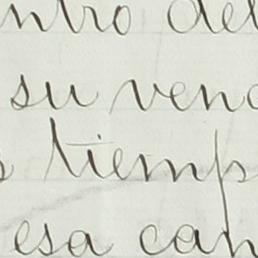 ntro del
su ven
s tiemp
esa can